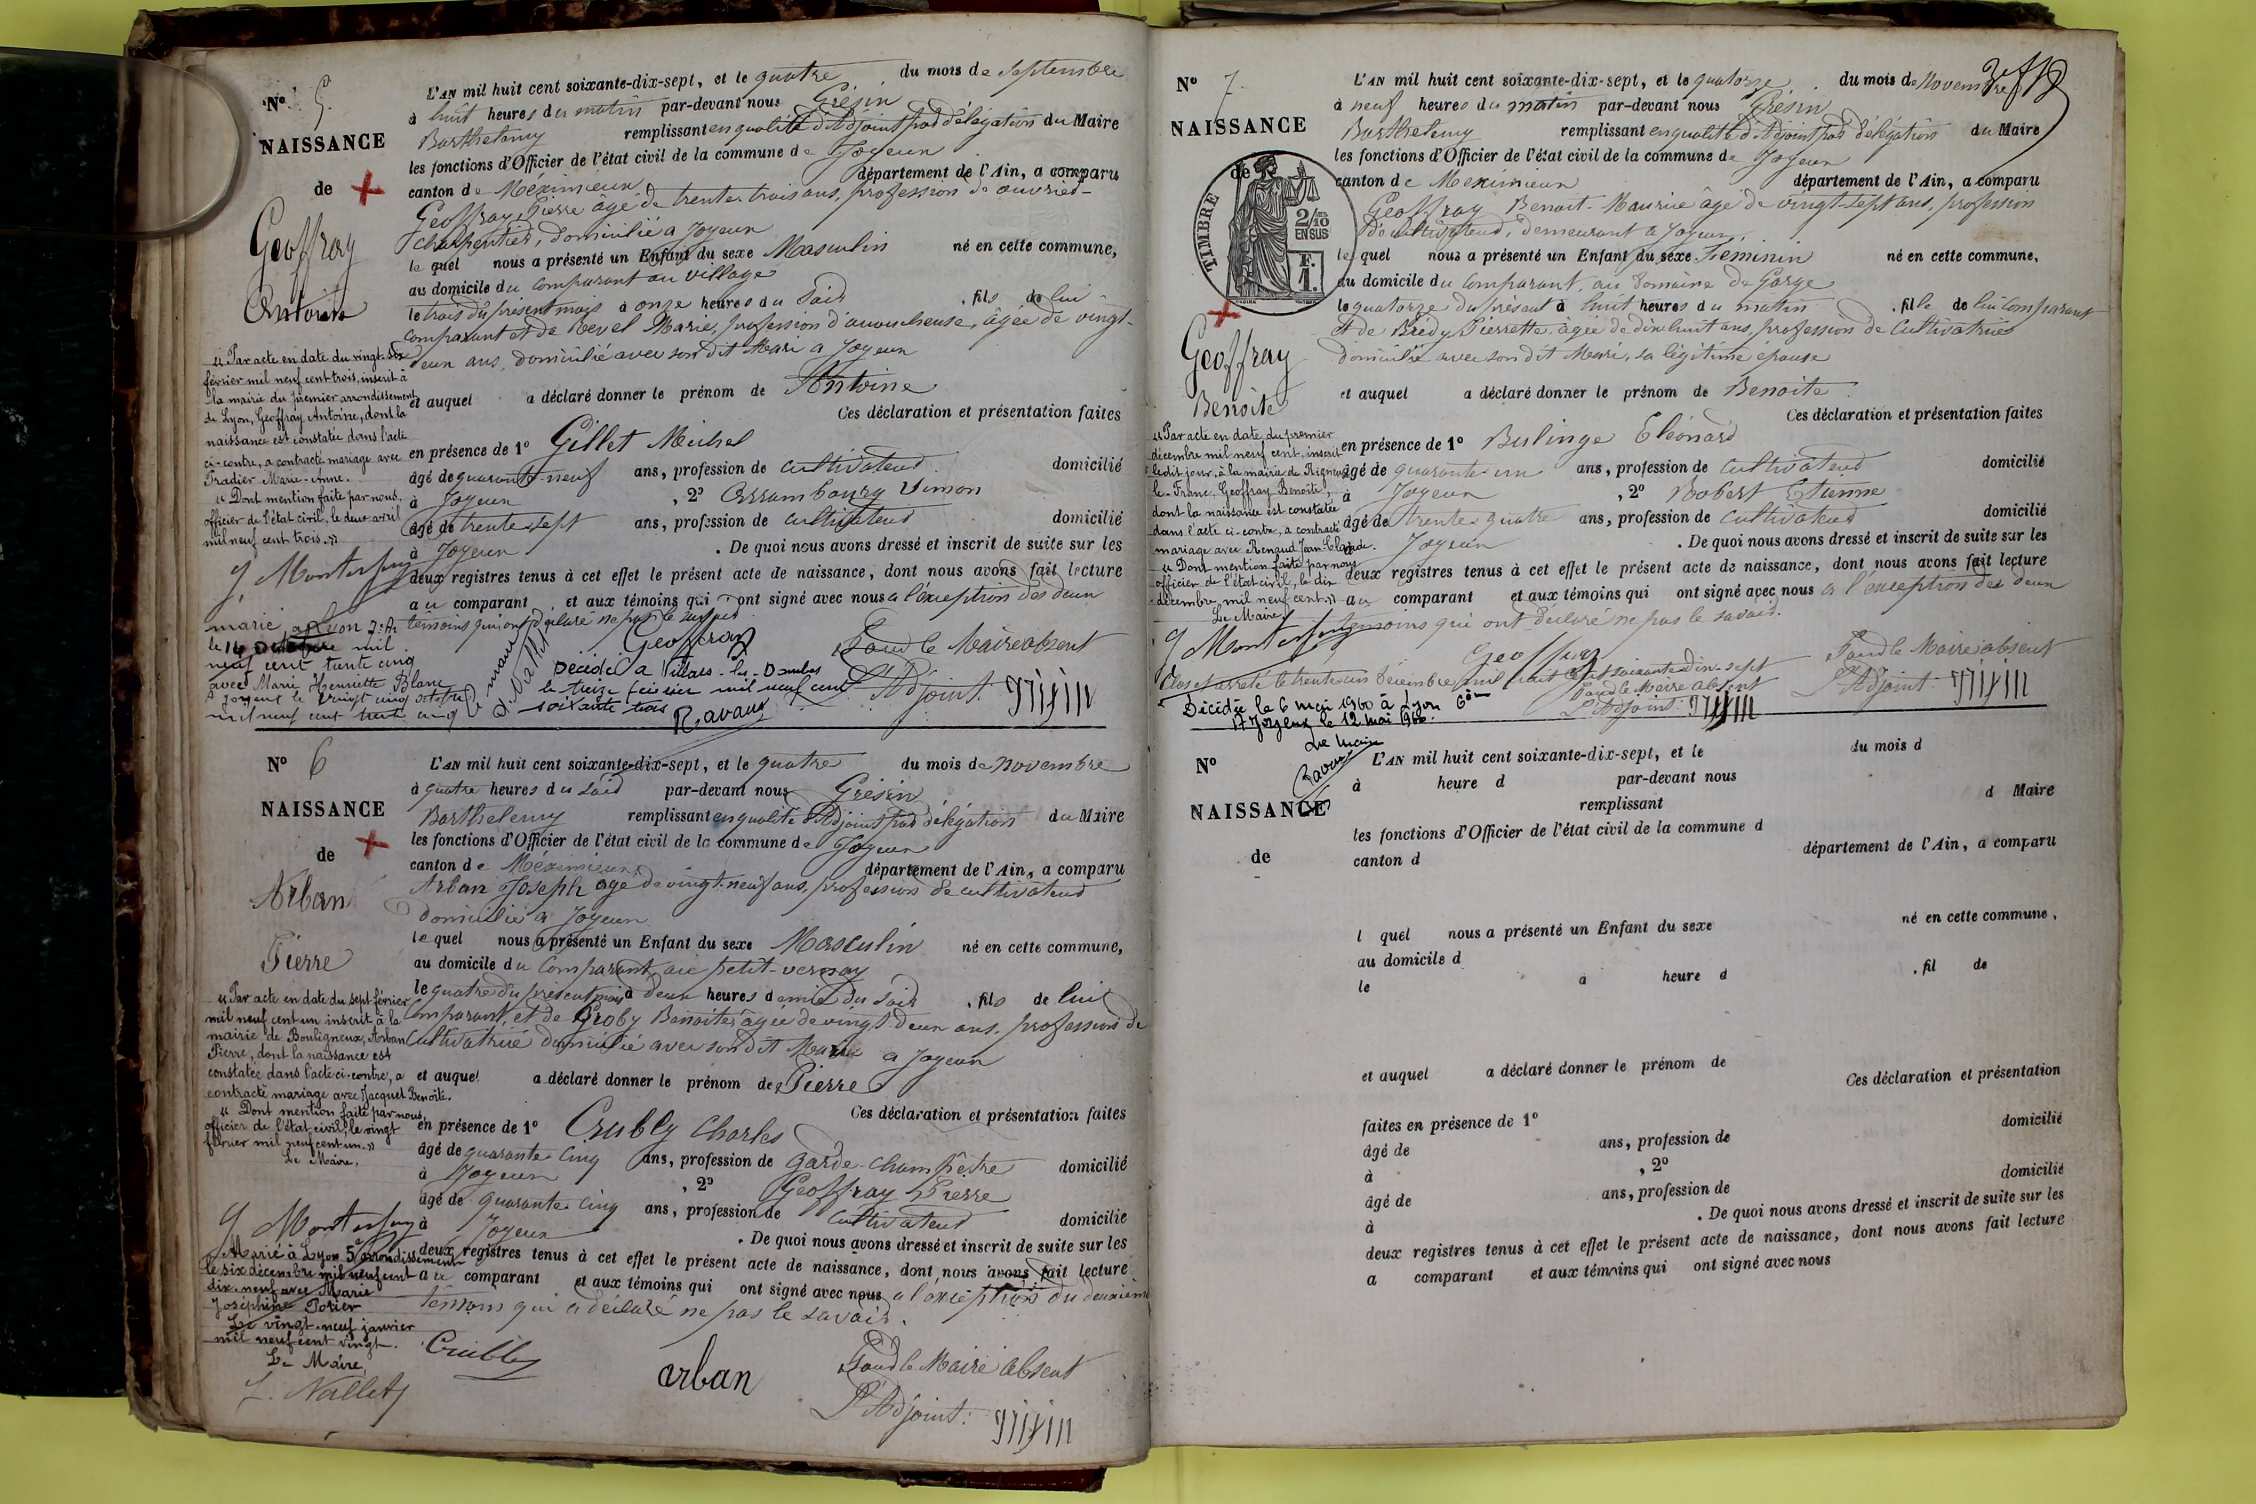 N° 5.
NAISSANCE
de
Geoffray
Antoine
L'AN mil huit cent soixante-dix-sept, et le quatre du mois de Septembre
à huit heures du matin par-devant nous Grésin
Barthelemy remplissant en qualité d'Adjoint par délégation du Maire
les fonctions d'Officier de l'état civil de la commune de Joyeux
canton de Méximieux département de l'Ain, a comparu
Geoffray Pierre âgé de trente trois ans, profession de ouvrier
charpentier, domicilié a Joyeux
le quel nous a présenté un Enfant du sexe Masculin né en cette commune,
au domicile du comparant au village
le trois du présent mois à onze heures du Soir , fils de lui
comparant et de Revel Marie, profession d'accoucheuse, âgée de vingt-
deux ans, domicilié avec son dit Mari a Joyeux
et auquel a déclaré donner le prénom de Antoine
Ces déclaration et présentation faites
en présence de 1° Gillet Michel
âgé de quarante-neuf ans, profession de cultivateur domicilié
à Joyeux , 2° Assambourg Simon
âgé de trente sept ans, profession de cultivateur domicilié
à Joyeux . De quoi nous avons dressé et inscrit de suite sur les
deux registres tenus à cet effet le présent acte de naissance, dont nous avons fait lecture
au comparant et aux témoins qui ont signé avec nous a l'exception des deux
temoins qui ont déclaré ne pas le
Geoffray
Pour le Maire absent
L'Adjoint: Grésin
« Par acte en date du vingt-six
février mil neuf cent trois, inscrit à
la mairie du premier arrondissement
de Lyon, Geoffray Antoine, dont la
naissance est constatée dans l'acte
ci-contre, a contracté mariage avec
Pradier Marie-Anne.
« Dont mention faite par nous,
officier de l'état civil, le deux avril
mil neuf cent trois. »
marié a Lyon
le 14 Octobre mil
neuf cent trente cinq
avec Marie Henriette Blanc
a Joyeux le vingt cinq octobre
mil neuf cent trente cinq
Le maire
J. Nallet
Décédé a Villars-les-Dombes
le treize février mil neuf cent
soixante trois
Ravaux
N° 6
NAISSANCE
de
Arban
Pierre
L'AN mil huit cent soixante-dix-sept, et le quatre du mois de novembre
à quatre heures du soir par-devant nous Grésin
Barthelemy remplissant en qualité d'Adjoint par délégation du Maire
les fonctions d'Officier de l'état civil de la commune de Joyeux
canton de Méximieux département de l'Ain, a comparu
Arban Joseph âgé de vingt-neuf ans, profession de cultivateur
domicilié a Joyeux
le quel nous a présenté un Enfant du sexe Masculin né en cette commune,
au domicile du Comparant, au petit-vernay
le quatre du présent mois à deux heures demie du Soir , fils de lui
Comparant, et de Groby Benoite âgée de vingt-deux ans, profession de
Cultivatrice domicilié avec son dit Mari a Joyeux
et auquel a déclaré donner le prénom de Pierre
Ces déclaration et présentation faites
en présence de 1° Crubly Charles
âgé de quarante cinq ans, profession de garde-champêtre domicilié
à Joyeux , 2° Geoffray Pierre
âgé de quarante cinq ans, profession de cultivateur domicilié
à Joyeux . De quoi nous avons dressé et inscrit de suite sur les
deux registres tenus à cet effet le présent acte de naissance, dont nous avons fait lecture
au comparant et aux témoins qui ont signé avec nous a l'exception du deuxième
temoins qui a déclaré ne pas le savoir.
arban
Pour le Maire absent
L'Adjoint: Grésin
« Par acte en date du sept février
mil neuf cent un inscrit à la
mairie de Bouligneux, Arban
Pierre, dont la naissance est
constatée dans l'acte ci-contre, a
contracté mariage avec Jacquet Benoîte.
« Dont mention faite par nous,
officier de l'état civil, le vingt
février mil neuf cent un. »
Le Maire,
Marié à Lyon 5e arrondissement
le six décembre mil neuf cent
dix-neuf avec Marie
Joséphine Porier
Le vingt-neuf janvier
mil neuf cent vingt.
Le Maire,
J. Nallet
N° 7.
NAISSANCE
de
TIMBRE
2/10
EN SUS
F.
1.
Geoffray
Benoîte
L'AN mil huit cent soixante-dix-sept, et le quatorze du mois de Novembre
à neuf heures du matin par-devant nous Grésin
Barthelemy remplissant en qualité d'Adjoint par délégation du Maire
les fonctions d'Officier de l'état civil de la commune de Joyeux
canton de Meximieux département de l'Ain, a comparu
Geoffray Benoit-Maurice âgé de vingt-sept ans, profession
de cultivateur, demeurant a Joyeux,
le quel nous a présenté un Enfant du sexe Feminin né en cette commune,
au domicile du comparant, au domaine de Gorge
le quatorze du présent à huit heures du matin , fille de lui Comparant
et de Bredy Pierrette, âgée de dix huit ans, profession de Cultivatrice
domicilié avec son dit Mari, sa légitime épouse
et auquel a déclaré donner le prénom de Benoite
Ces déclaration et présentation faites
en présence de 1° Bulinge Eléonard
âgé de quarante un ans, profession de cultivateur domicilié
à Joyeux , 2° Robert Etienne
âgé de trente quatre ans, profession de cultivateur domicilié
à Joyeux . De quoi nous avons dressé et inscrit de suite sur les
deux registres tenus à cet effet le présent acte de naissance, dont nous avons fait lecture
au comparant et aux témoins qui ont signé avec nous a l'exception des deux
temoins qui ont déclaré ne pas le savoir.
Geoffray
Pour le Maire absent
L'Adjoint: Grésin
« Par acte en date du premier
décembre mil neuf cent, inscrit
ledit jour à la mairie de Rignieux
le-Franc, Geoffray Benoîte,
dont la naissance est constatée
dans l'acte ci-contre, a contracté
mariage avec Renaud Jean-Claude.
« Dont mention faite par nous
officier de l'état civil, le dix
décembre mil neuf cent. »
Le Maire,
Clos et arrêté le trente un Décembre mil huit cent soixante dix-sept
Pour le Maire absent
L'Adjoint: Grésin
Décédée le 6 mai 1960 à Lyon 6em
A Joyeux le 12 mai 1960.
Le maire
Ravaux
N°
NAISSANCE
de
L'AN mil huit cent soixante-dix-sept, et le du mois d
à heure d par-devant nous
remplissant d Maire
les fonctions d'Officier de l'état civil de la commune d
canton d département de l'Ain, a comparu
l quel nous a présenté un Enfant du sexe né en cette commune,
au domicile d
le à heure d , fil de
et auquel a déclaré donner le prénom de
Ces déclaration et présentation
faites en présence de 1° domicilié
âgé de ans, profession de
à , 2° domicilié
âgé de ans, profession de
à . De quoi nous avons dressé et inscrit de suite sur les
deux registres tenus à cet effet le présent acte de naissance, dont nous avons fait lecture
a comparant et aux témoins qui ont signé avec nous